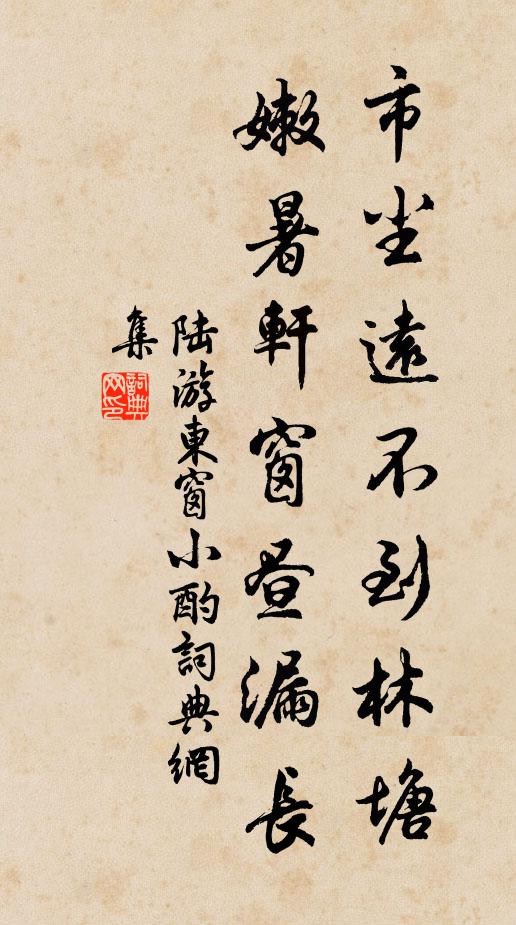 市尘遠不到林塘
嫩暑軒窗昼漏長
陆游東窗小酌詞典網
集
詞典网印